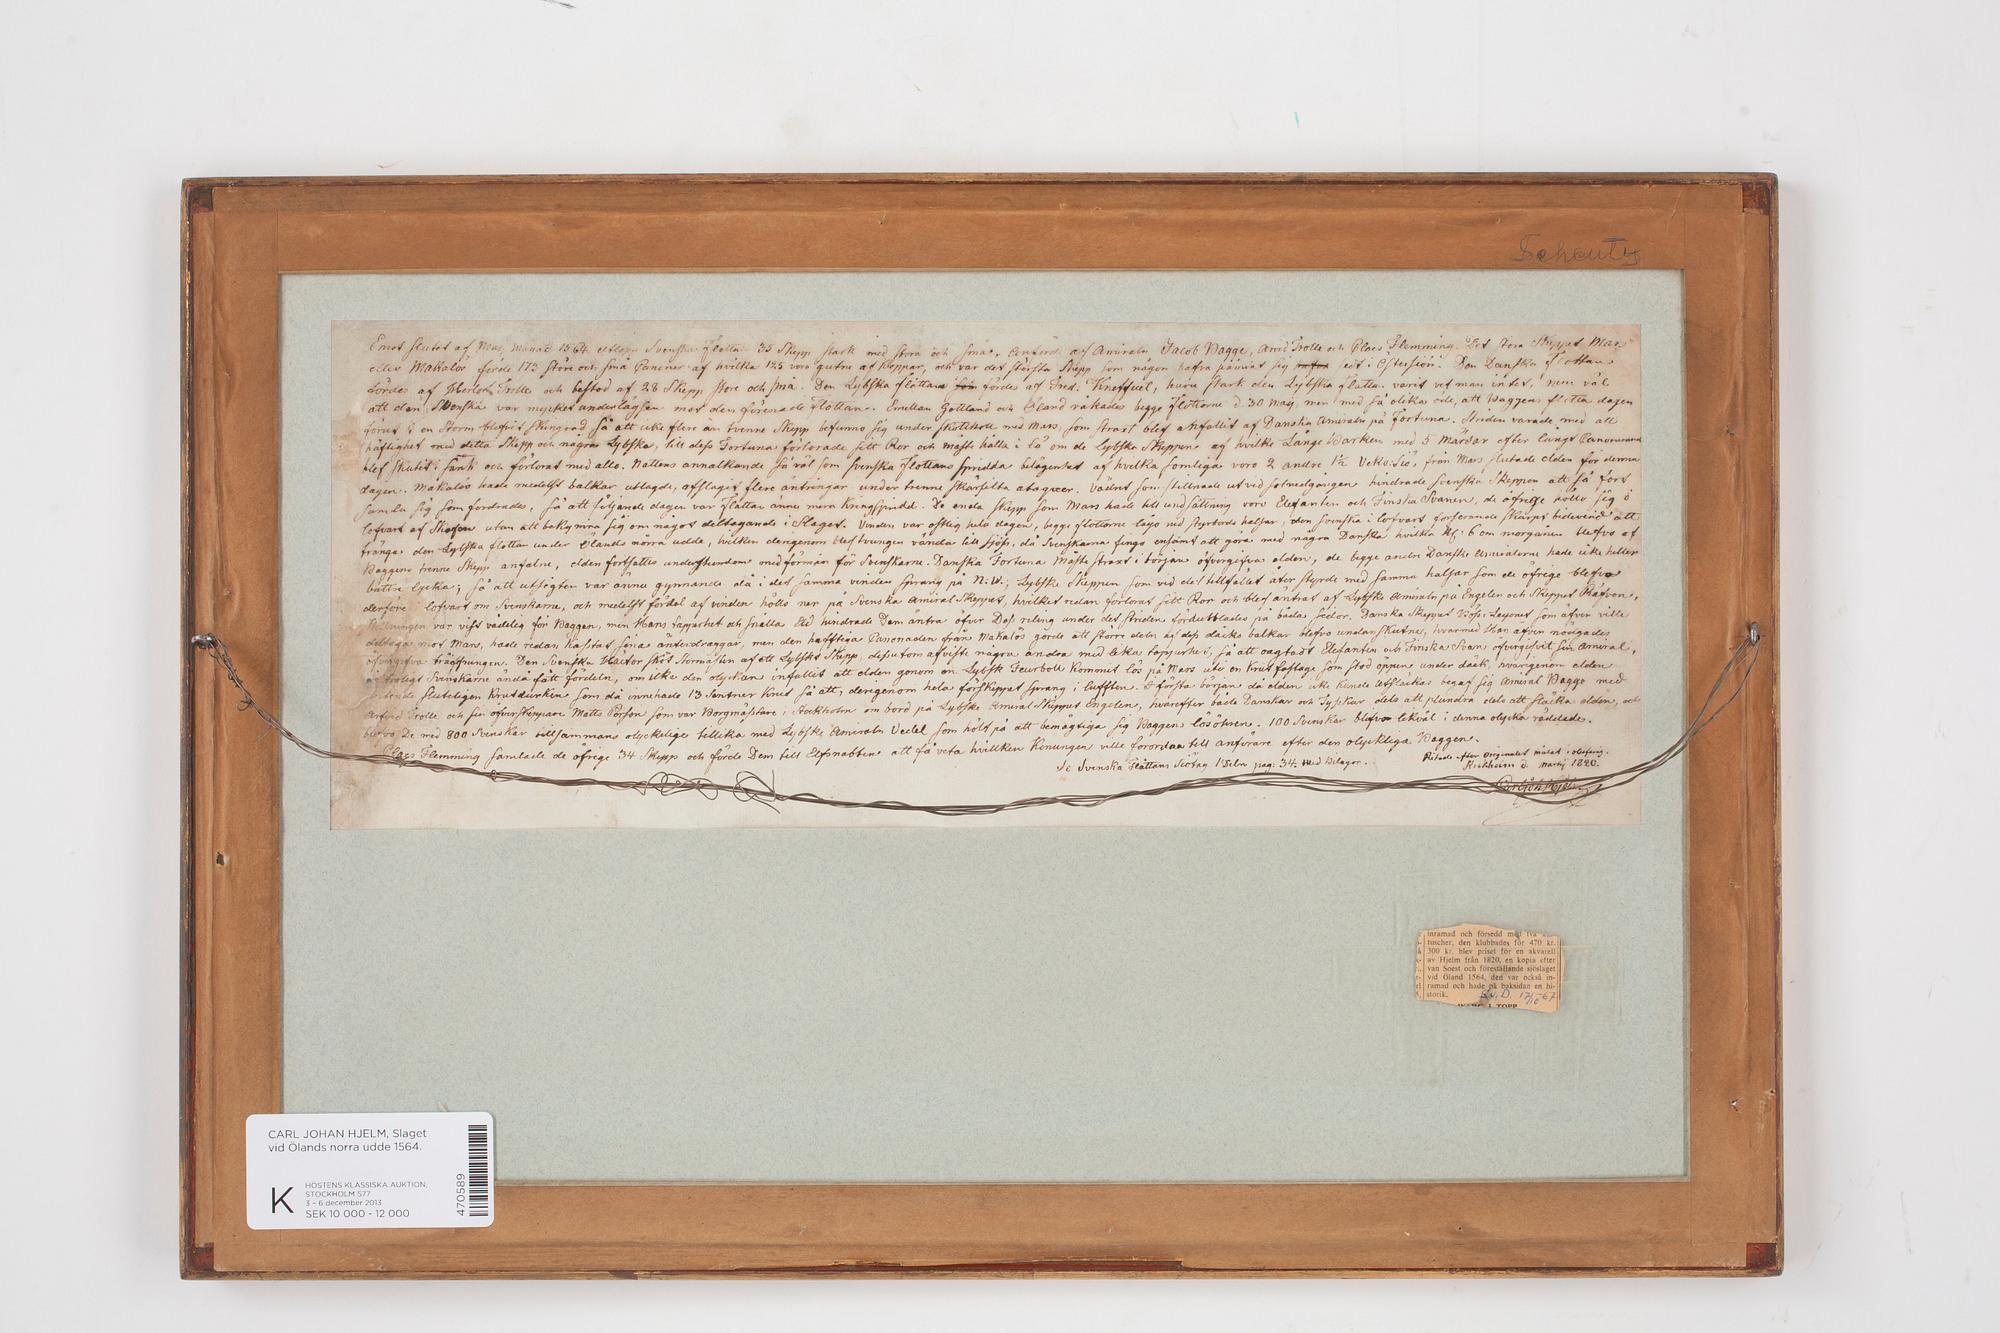 Schultz
Emot slutet af Maij månad 1564 utlopp Svenska Flottan 35 Skepp stark med stora och små, anförd af Amiraln Jacob Bagge, Arvid Trolle och Claes Flemming. Det stora Skeppet Mars
eller Makalös förde 173 store och små Canoner af hvilka 125 voro gutna af Koppar, och var det största Skepp som någon hafva påmint sig sedt i Östersjön. Den Danska Flottan
fördes af Herlof Trolle och bestod af 28 Skepp store och små. Den Lybska flottan fördes af Fred: Kneffuel, huru stark den Lybska Flottan varit vet man intet, men väl
att den Svenska var mycket underlägsen mot den förenade Flottan. Emellan Gottland och Öland råkades begge Flottorne d. 30 Maij, men med så olika öde, att Baggens flotta dagen
förut i en Storm blefvit skingrad så att icke flere än trenne Skepp befunno sig under skotthåll med Mars, som strax blef anfallit af Danska Amiraln på Fortuna. Striden varade med all
häftighet med detta Skepp och några Lybska, till dess Fortuna förlorade sitt Ror och måste hålla i lä om de Lybske Skeppen af hvilke Långe Barken med 5 Mårdar efter långt Canonerand
blef skutit i sank och förlorat med allo. Nattens annalkande så väl som svenska flottans spridda belägenhet af hvilka somliga voro 2 andre 1½ Veckosiö, från Mars slutade elden för denna
dagen. Makalös hade medelst balkar utlagde, afslagit flere äntringar under trenne särskilta ataquer. Vädret som stillnade ut vid solnedgången hindrade Svenska Skeppen att så fort
samla sig som fordrades, så att följande dagen var Flottan ännu mera kringspridd. De enda skepp som Mars hade till undsättning voro Elefanten och Finska Svanen, de öfrige höllo sig i
lofvart af Skagen utan att bekymra sig om något deltagande i Slaget. Vinden var ostlig hela dagen, begge flottorne lågo vid styrbords halsar, den Svenska i lofvart forserande skarpt bidevind att
tränga den Lybska flottan under Ölands norra udde, hvilken derigenom blef tvungen vända till sjöss, då Svenskarna fingo ensamt att göra med några Danska hvilka kl. 6 om morgonen blefvo af
Baggens trenne Skepp anfalne, elden fortsattes understundom med förmån för Svenskarne. Danska Fortuna måste straxt i början öfvergifva elden, de begge andre Danske Amiralerne hade icke heller
bättre lycka; så att utsigten var ännu gynnande då i det samma vinden sprang på N.W., Lybske Skeppen som vid det tillfället åter styrde med samma halsar som de öfrige blefvo
derföre i lofvart om Svenskarne, och medelst fördel af vinden höllo ner på Svenska Amiral-Skeppet, hvilket redan förlorat sitt Ror och blef äntrat af Lybske Amiraln på Engelen och Skeppet Räfven,
var visst vådelig för Baggen, men Hans tapperhet och snälla Eld hindrade Dem äntra öfver Dess reling under det striden fördubblades på båda sidor. Danska Skeppet Böse Lejonet som äfven ville
deltaga mot Mars, hade redan kastat sina änterdraggar, men den häfftiga Canonaden från Makalös gjorde att större deln af dess däcks balkar blefvo undanskutne, hvarmed Han äfven nödgades
öfvergifva träffningen. Den Svenska Hector sköt Stormasten af ett Lybskt Skepp, dessutom afviste några andra med lika tapperhet, så att oagtadt Elefanten och Finska Svan öfvergifvit sin Amiral,
troligt Svenskarne ändå fått fördeln, om icke den olyckan infallit att elden genom en Lybsk Feurboll kommit lös på Mars uti en Krut fastage som stod öppen under däck, hvarigenom elden
sluteligen Krutdurken som då innehade 13 Sentner Krut så att, derigenom hela förskeppet sprang i lufften. I första början då elden icke kunde utsläckas begaf sig Amiral Bagge med
Arfvid Trolle och sin öfverskeppare Matts Pärson som var Borgmästare i Stockholm om bord på Lybske Amiral-Skeppet Engelen, hvarefter både Danskar och Tyskar dels att plundra dels att släcka elden, och
blefvo De med 800 Svenskar tillsammans olyckelige tillika med Lybske Amiraln Vedel som höll på att bemägtiga sig Baggens lösören. 100 Svenskar blefvo likväl i denna olycka räddade.
Claes Flemming samlade de öfrige 34 Skepp och förde Dem till Elfsnabben att få veta hvillken Konungen ville förordna till anförare efter den olyckliga Baggen.
Se Svenska Flottans Siötåg 1 Deln pag: 34. med Bilagor.
Ritade efter Originalet målat i oljefärg.
Stockholm d. Martij 1820.
Carl Joh Hjelm
inramad och försedd med två
tuscher, den klubbades för 470 kr.
300 kr. blev priset för en akvarell
av Hjelm från 1820, en kopia efter
van Soest och föreställande sjöslaget
vid Öland 1564, den var också in-
ramad och hade på baksidan en hi-
storik. Sv.D. 17/10-67
CARL JOHAN HJELM, Slaget
vid Ölands norra udde 1564.
K
HÖSTENS KLASSISKA AUKTION,
STOCKHOLM 577
3 – 6 december 2013
SEK 10 000 - 12 000
470589